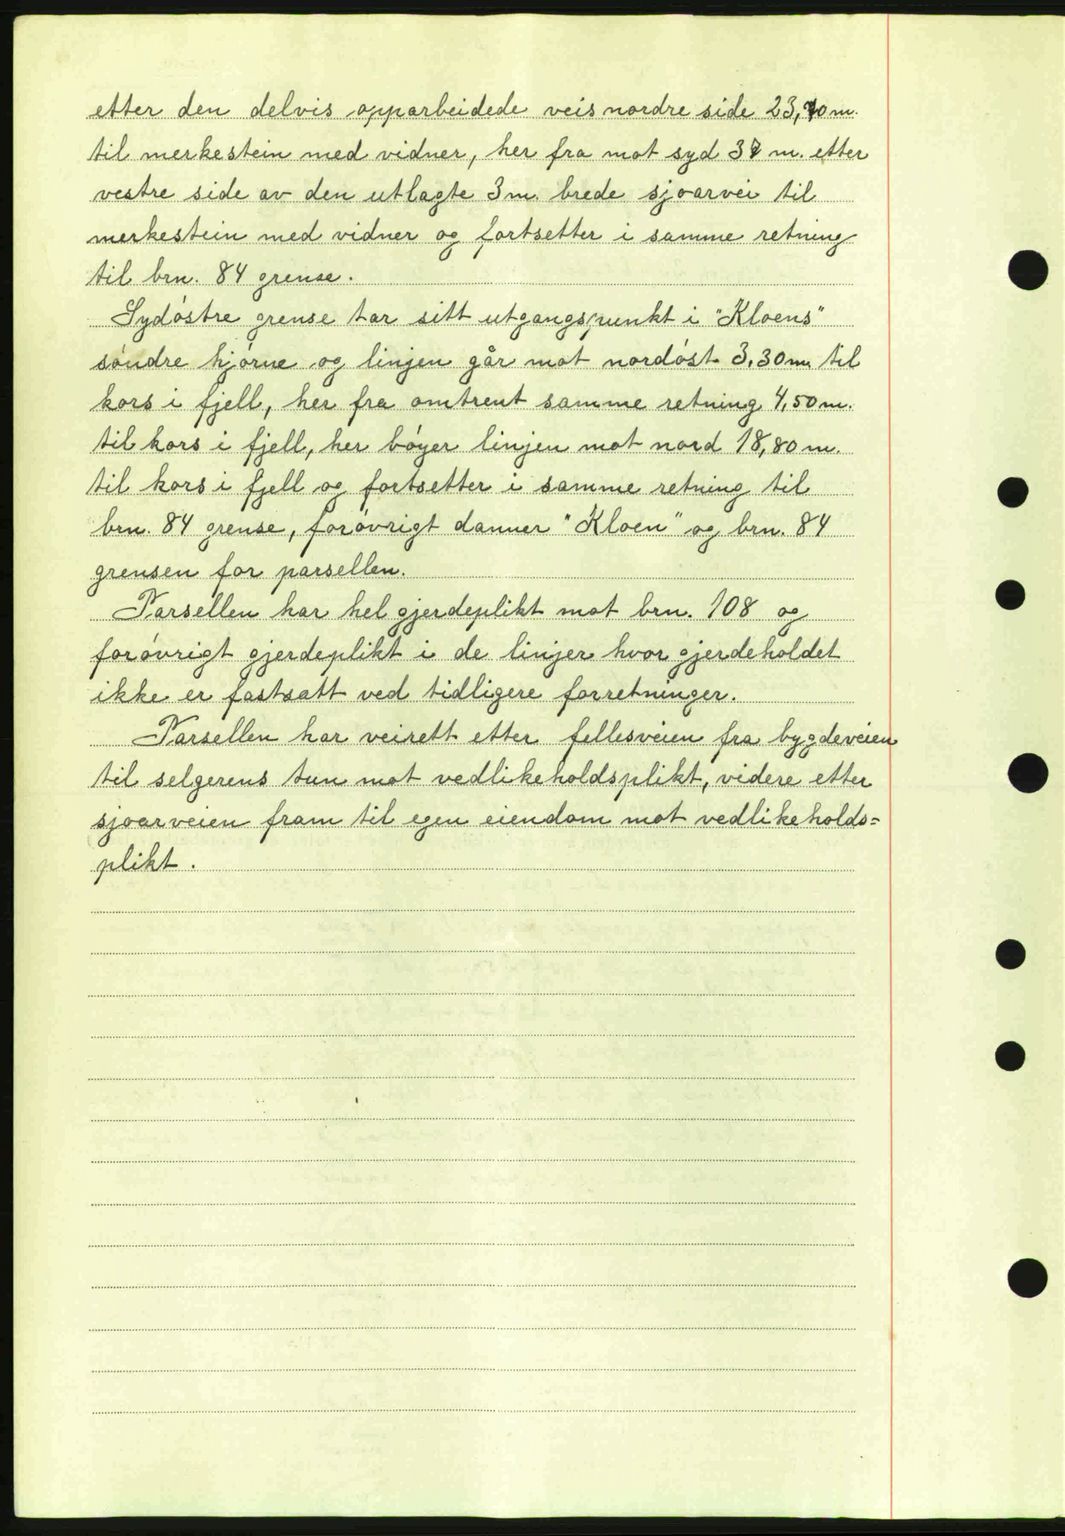 etter den delvis opparbeidede veis nordre side 23,70 m.
til merkestein med vidner, her fra mot syd 37 m. etter
vestre side av den utlagte 3 m. brede sjoarvei til
merkestein med vidner og fortsetter i samme retning
til brn. 84 grense.
Sydóstre grense tar sitt utgangspunkt i "Kloens"
sóndre hjórne og linjen går mot nordóst 3.30 m. til
kors i fjell, her fra omtrent samme retning 4,50 m.
til kors i fjell, her bóyer linjen mot nord 18,80 m.
til kors i fjell og fortsetter i samme retning til
brn. 84 grense, foróvrigt danner "Kloen" og brn. 84
grensen for parsellen.
Parsellen har hel gjerdeplikt mot brn. 108 og
foróvrigt gjerdeplikt i de linjer hvor gjerdeholdet
ikke er fastsatt ved tidligere forretninger.
Parsellen har veirett etter fellesveien fra bygdeveien
til selgerens tun mot vedlikeholdsplikt, videre etter
sjoarveien fram til egen eiendom mot vedlikeholds=
plikt.